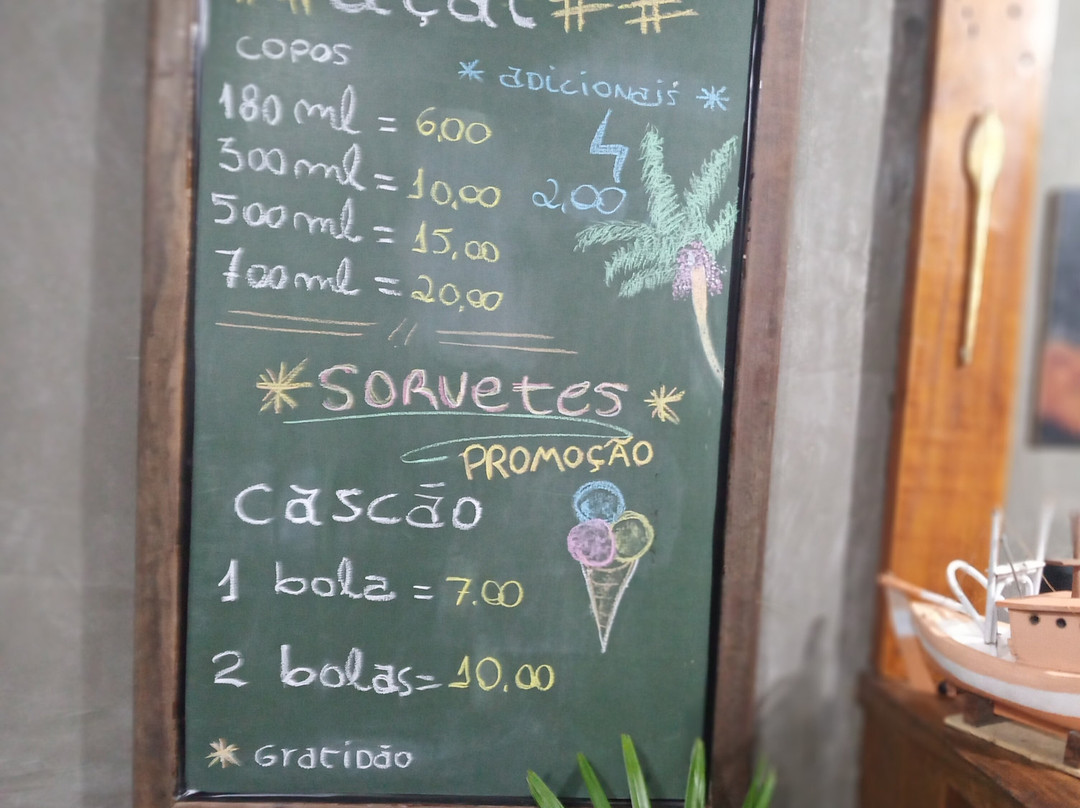 ## açaí ##
COPOS
* adicionais *
180 ml = 6,00
300 ml = 10,00
2,00
500 ml = 15,00
700 ml = 20,00
* SORVETES *
PROMOÇÃO
CASCÃO
1 bola = 7.00
2 bolas = 10.00
* Gratidão